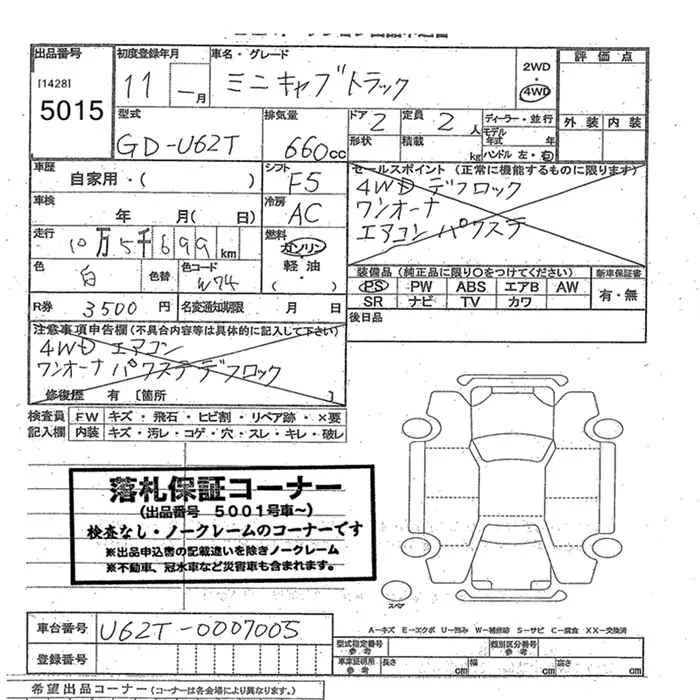 出品番号
[1428]
5015
初度登録年月
11 一月
車名・グレード
ミニキャブトラック
2WD
・
4WD
評価点
外装 内装
型式
GD-U62T
排気量
660cc
ドア 2
定員 2 人
形状
積載 kg
ディーラー・並行
モデル年式 年
ハンドル 左・右
車歴
自家用・( )
シフト
F5
セールスポイント(正常に機能するものに限ります)
4WD デフロック
ワンオーナ
エアコン パワステ
車検
年 月( 日)
冷房
AC
走行
10万5千699km
燃料
ガソリン
・
軽油
・
( )
色
白
色替
色コード
W74
装備品(純正品に限り○をつけてください)
PS PW ABS エアB AW
SR ナビ TV カワ
新車保証書
有・無
R券 3500円
名変通知期限 月 日
後日品
注意事項申告欄(不具合内容等は具体的に記入して下さい)
4WD エアコン
ワンオーナ パワステ デフロック
修復歴 有[箇所 ]
検査員記入欄
FW キズ・飛石・ヒビ割・リペア跡・×要
内装 キズ・汚レ・コゲ・穴・スレ・キレ・破レ
落札保証コーナー
(出品番号 5001号車~)
検査なし・ノークレームのコーナーです
※出品申込書の記載違いを除きノークレーム
※不動車、冠水車など災害車も含まれます。
スペア
A−キズ E−エクボ U−凹み W−補修跡 S−サビ C−腐食 XX−交換済
車台番号 U62T-0007005
登録番号
型式指定番号 参考
類別区分番号 参考
車庫証明用 参考 長さ cm 幅 cm 高さ cm
希望出品コーナー(コーナーは各会場により異なります。)